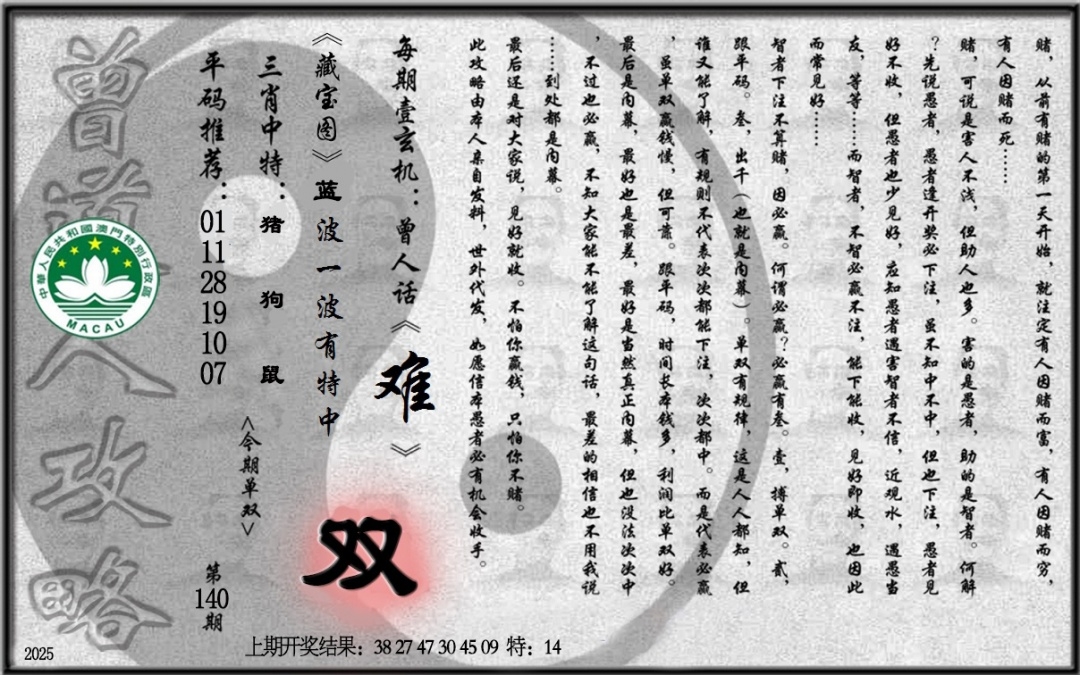 赌，从前有赌的第一天开始，就注定有人因赌而富，有人因赌而穷，
有人因赌而死……
赌，可说是害人不浅，但助人也多。害的是愚者，助的是智者。何解
？先说愚者，愚者逢开奖必下注，虽不知中不中，但也下注，愚者见
好不收，但愚者也少见好，应知愚者遇害智者不信，近观水，遇愚当
友，等等……而智者，不智必赢不注，能下能收，见好即收，也因此
而常见好……
智者下注不算赌，因必赢。何谓必赢？必赢有叁。壹，搏单双。贰，
跟平码。叁，出千（也就是内幕）。单双有规律，这是人人都知，但
谁又能了解，有规则不代表次次都能下注，次次都中。而是代表必赢
，虽单双赢钱慢，但可靠。跟平码，时间长本钱多，利润比单双好。
最后是内幕，最好也是最差，最好是当然真正内幕，但也没法次次中
，不过也必赢，不知大家能不能了解这句话，最差的相信也不用我说
……到处都是内幕。
最后还是对大家说，见好就收。不怕你赢钱，只怕你不赌。
此攻略由本人亲自发料，世外代发，如愿信本愚者必有机会收手。
每期壹玄机：曾人话《难》
《藏宝图》蓝波一波有特中
双
三肖中特：猪 狗 鼠
<今期单双>
平码推荐：01 11 28 19 10 07
第140期
曾道人攻略
中華人民共和國澳門特別行政區
MACAU
上期开奖结果：38 27 47 30 45 09 特：14
2025